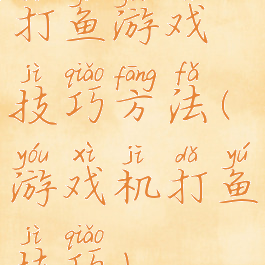 打鱼游戏
jì qiǎo fāng fǎ
技巧方法(
yóu xì jī dǎ yú
游戏机打鱼
jì qiǎo
技巧)